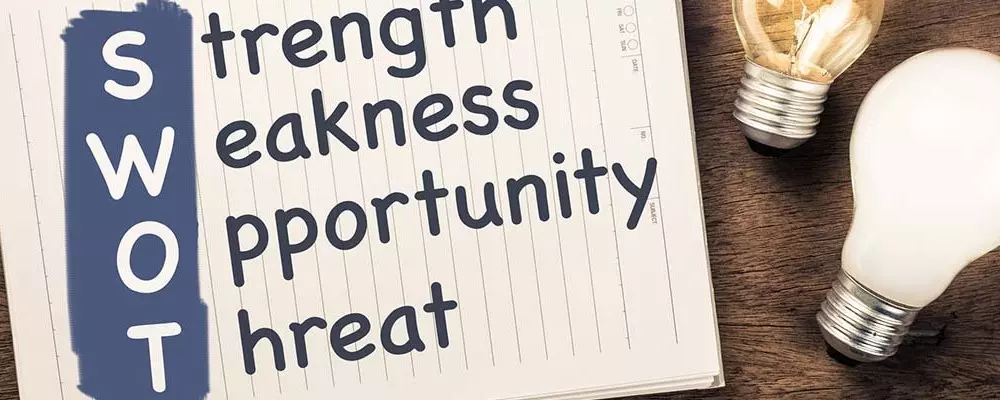 Strength
Weakness
Opportunity
Threat
FRI
SAT
SUN
DATE
NO.
SUBJECT